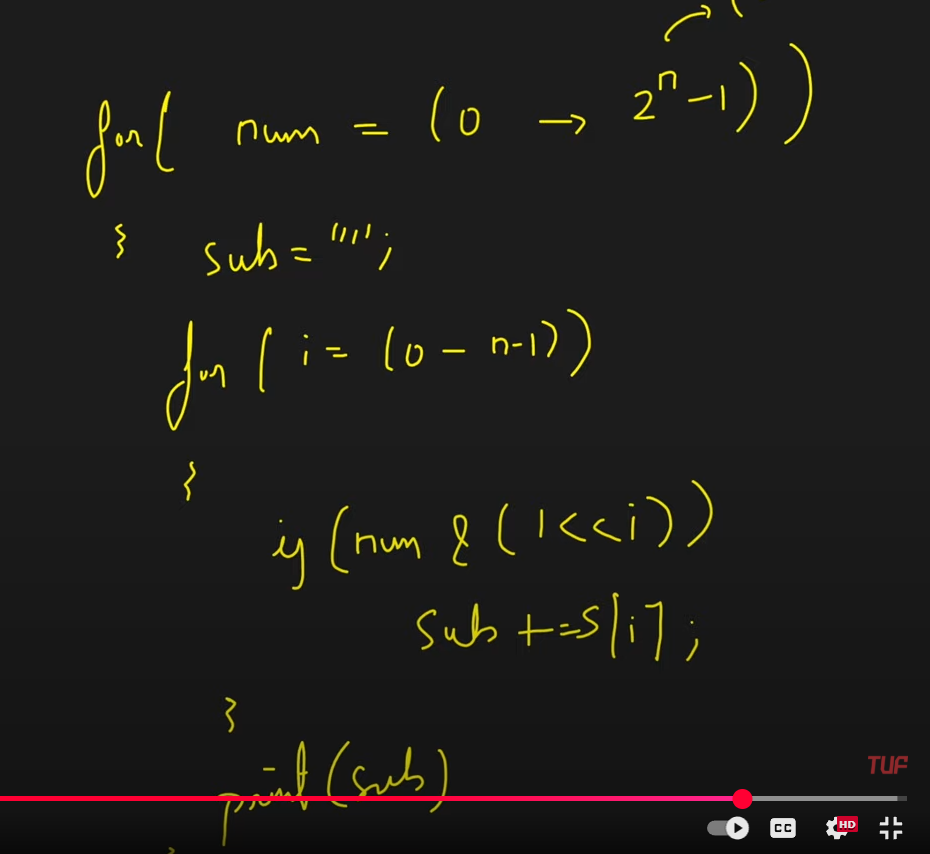 for( num = (0 → 2^n-1))
{ sub = "";
for ( i = (0 - n-1))
{
if (num & (1<<i))
sub += s[i];
}
print(sub)
TUF
CC
HD